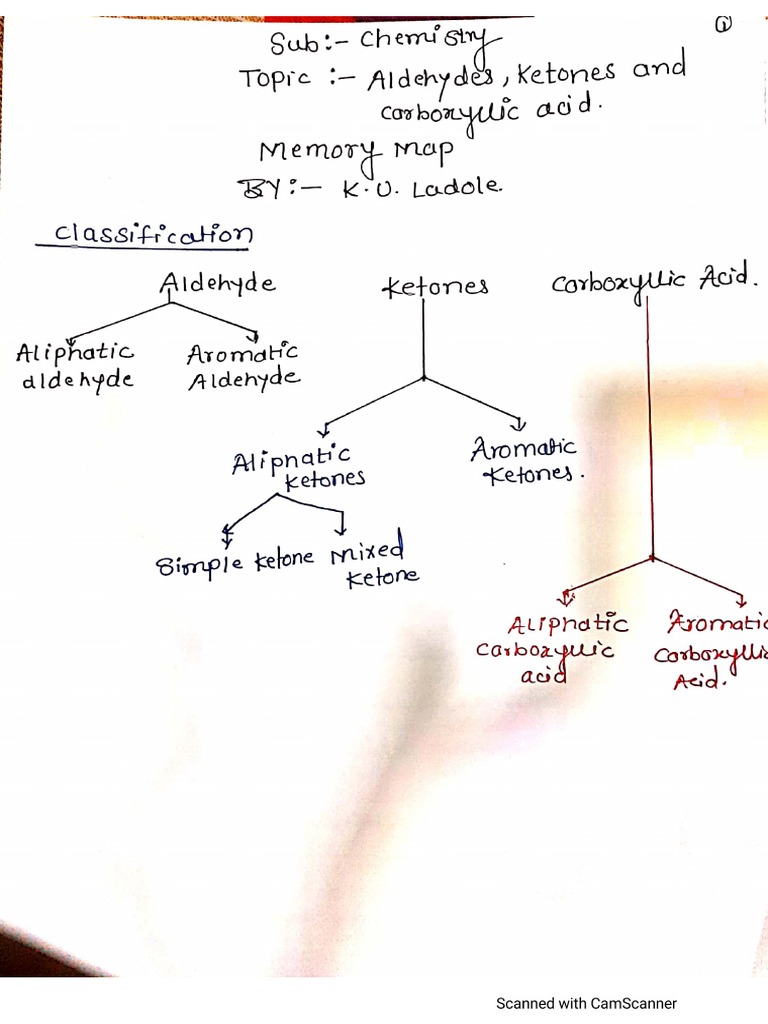 ①
Sub:- Chemistry
Topic :- Aldehydes, Ketones and
Carboxyllic acid.
Memory Map
BY:- K.U. Ladole.
Classification
Aldehyde
Ketones
Carboxyllic Acid.
Aliphatic
aldehyde
Aromatic
Aldehyde
Aliphatic
Ketones
Aromatic
Ketones.
Simple Ketone
Mixed
Ketone
Aliphatic
Carboxyllic
acid
Aromatic
Carboxyllic
Acid.
Scanned with CamScanner